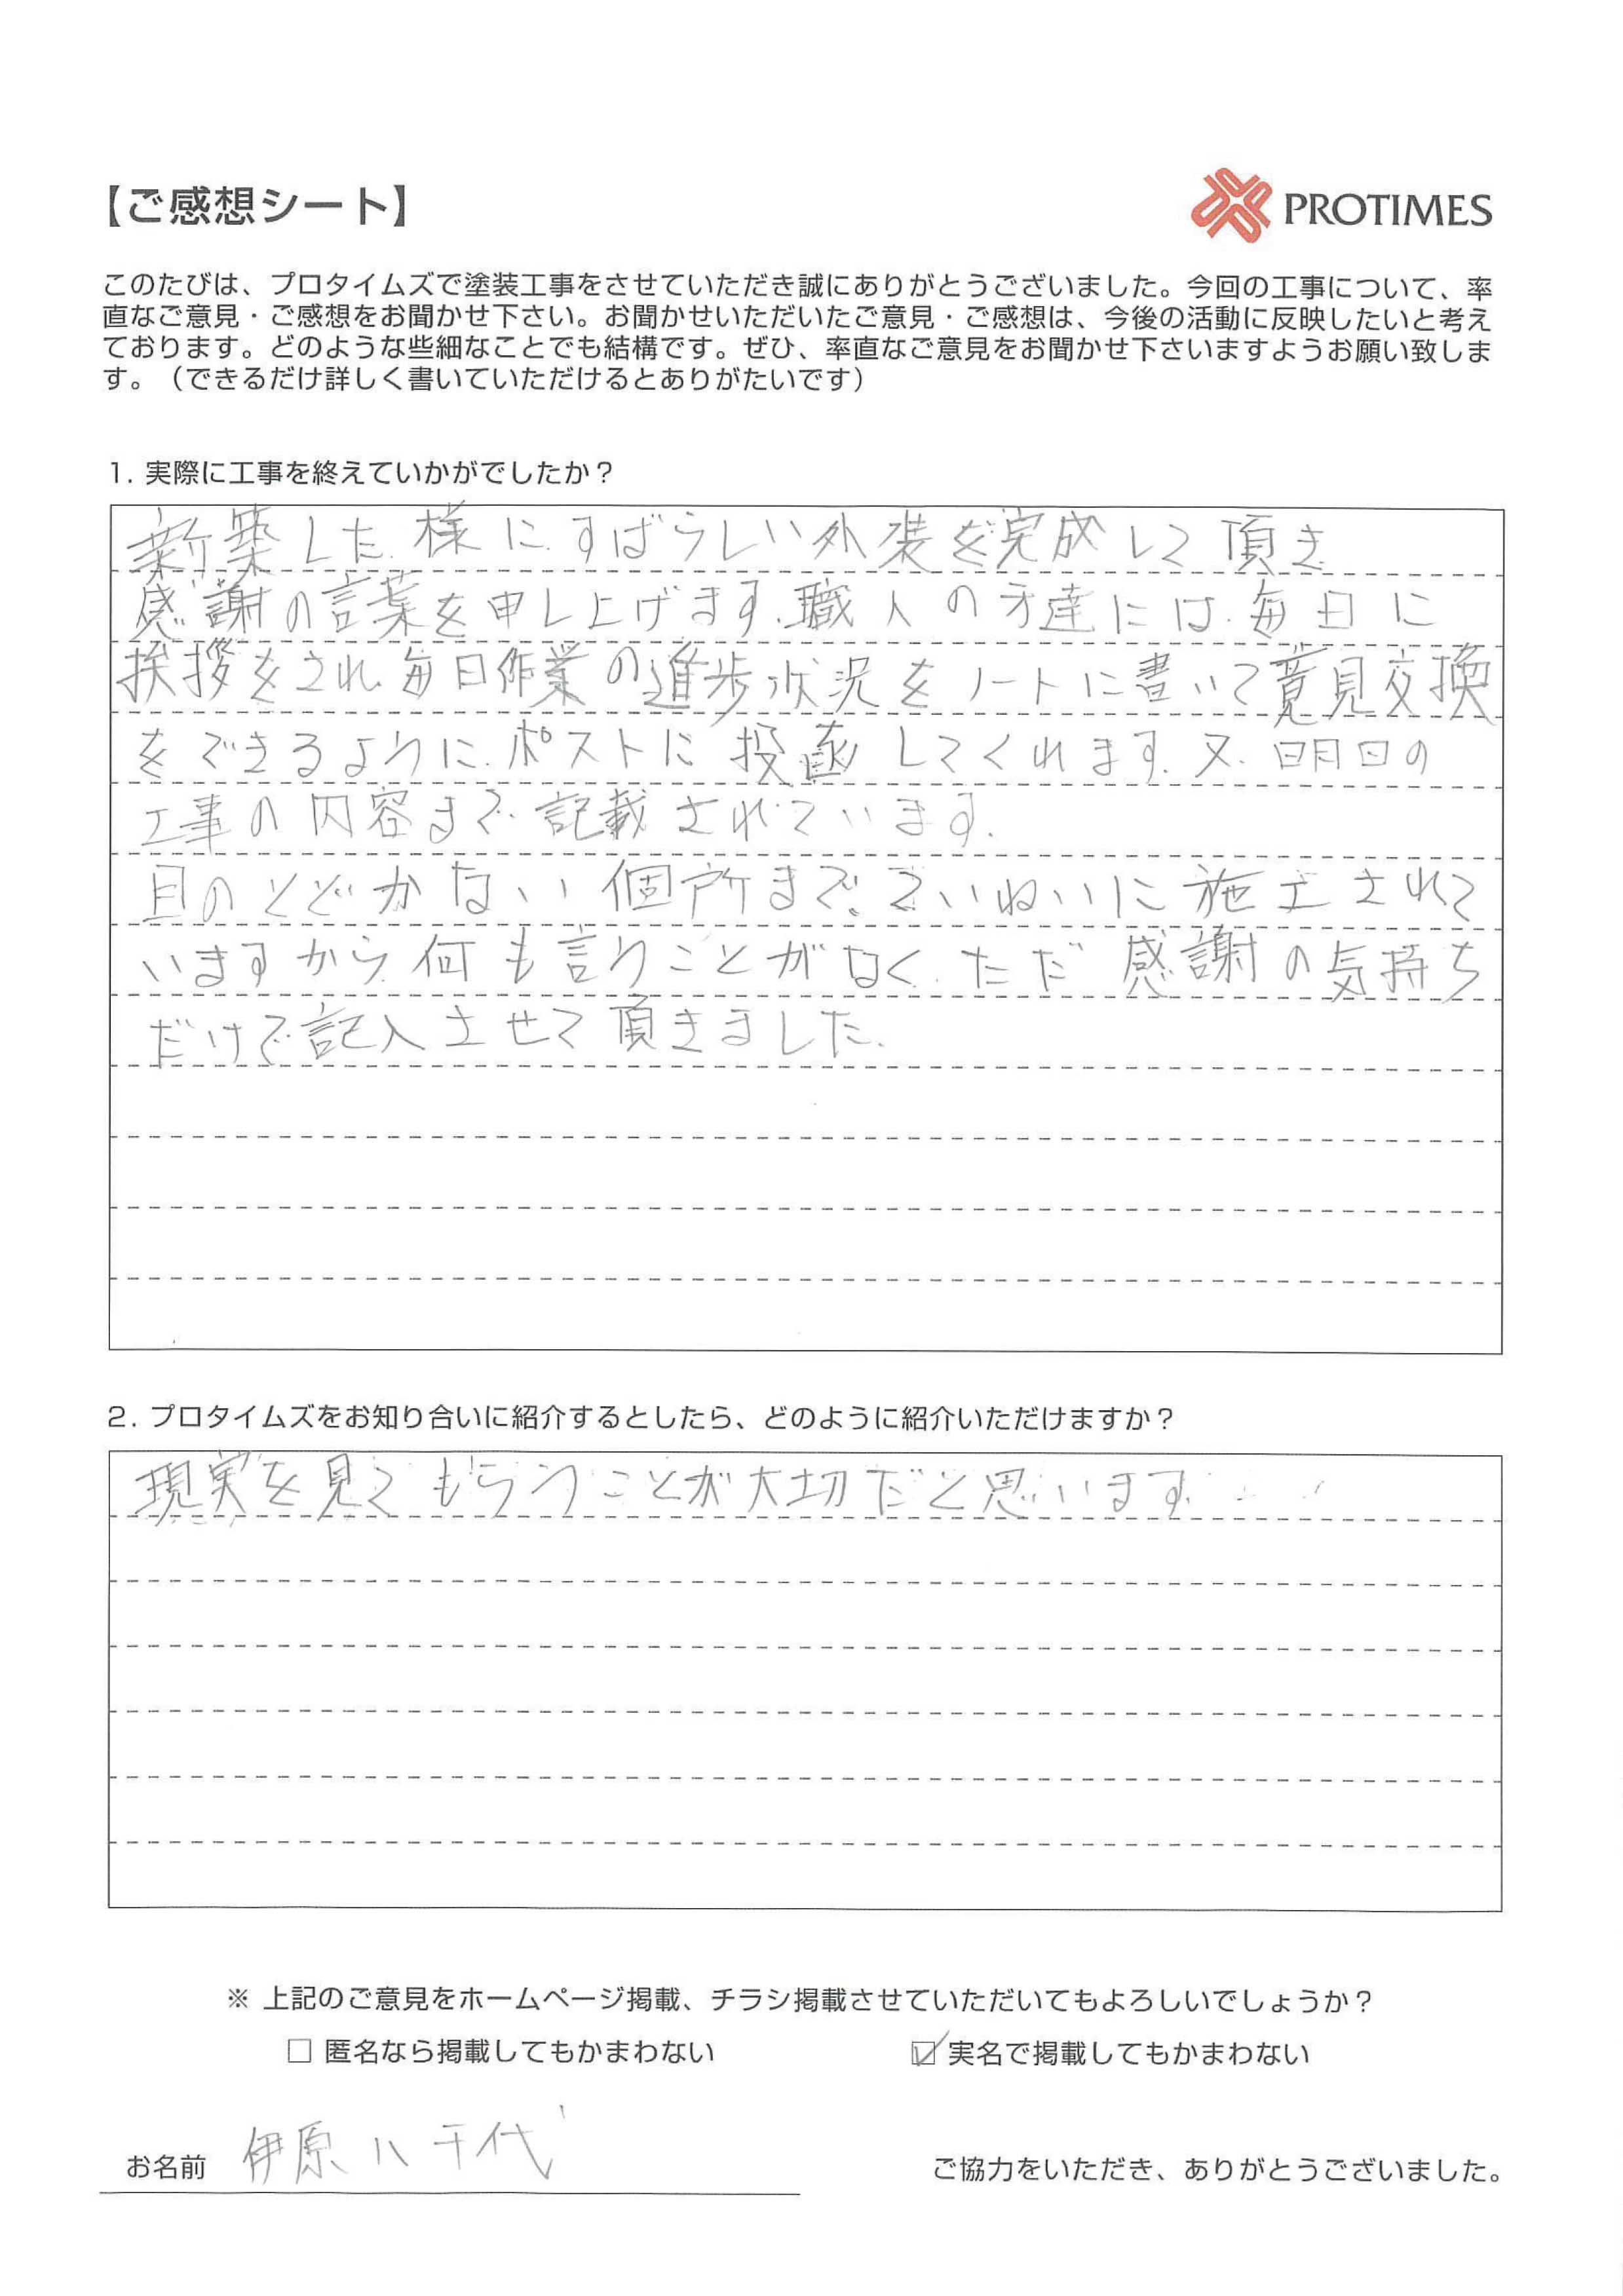 【ご感想シート】
PROTIMES
このたびは、プロタイムズで塗装工事をさせていただき誠にありがとうございました。今回の工事について、率
直なご意見・ご感想をお聞かせ下さい。お聞かせいただいたご意見・ご感想は、今後の活動に反映したいと考え
ております。どのような些細なことでも結構です。ぜひ、率直なご意見をお聞かせ下さいますようお願い致しま
す。（できるだけ詳しく書いていただけるとありがたいです）
1. 実際に工事を終えていかがでしたか？
新築した様にすばらしい外装を完成して頂き
感謝の言葉を申し上げます.職人の方達には.毎日に
挨拶をされ.毎日作業の進歩状況をノートに書いて意見交換
をできるように.ポストに投函してくれます.又.明日の
工事の内容まで記載されています.
目のとどかない個所まで.ていねいに施工されて
いますから.何も言うことがなく.ただ感謝の気持ち
だけで記入させて頂きました.
2. プロタイムズをお知り合いに紹介するとしたら、どのように紹介いただけますか？
現実を見てもらうことが大切だと思います.
※ 上記のご意見をホームページ掲載、チラシ掲載させていただいてもよろしいでしょうか？
□ 匿名なら掲載してもかまわない ☑ 実名で掲載してもかまわない
お名前 伊原八千代
ご協力をいただき、ありがとうございました。